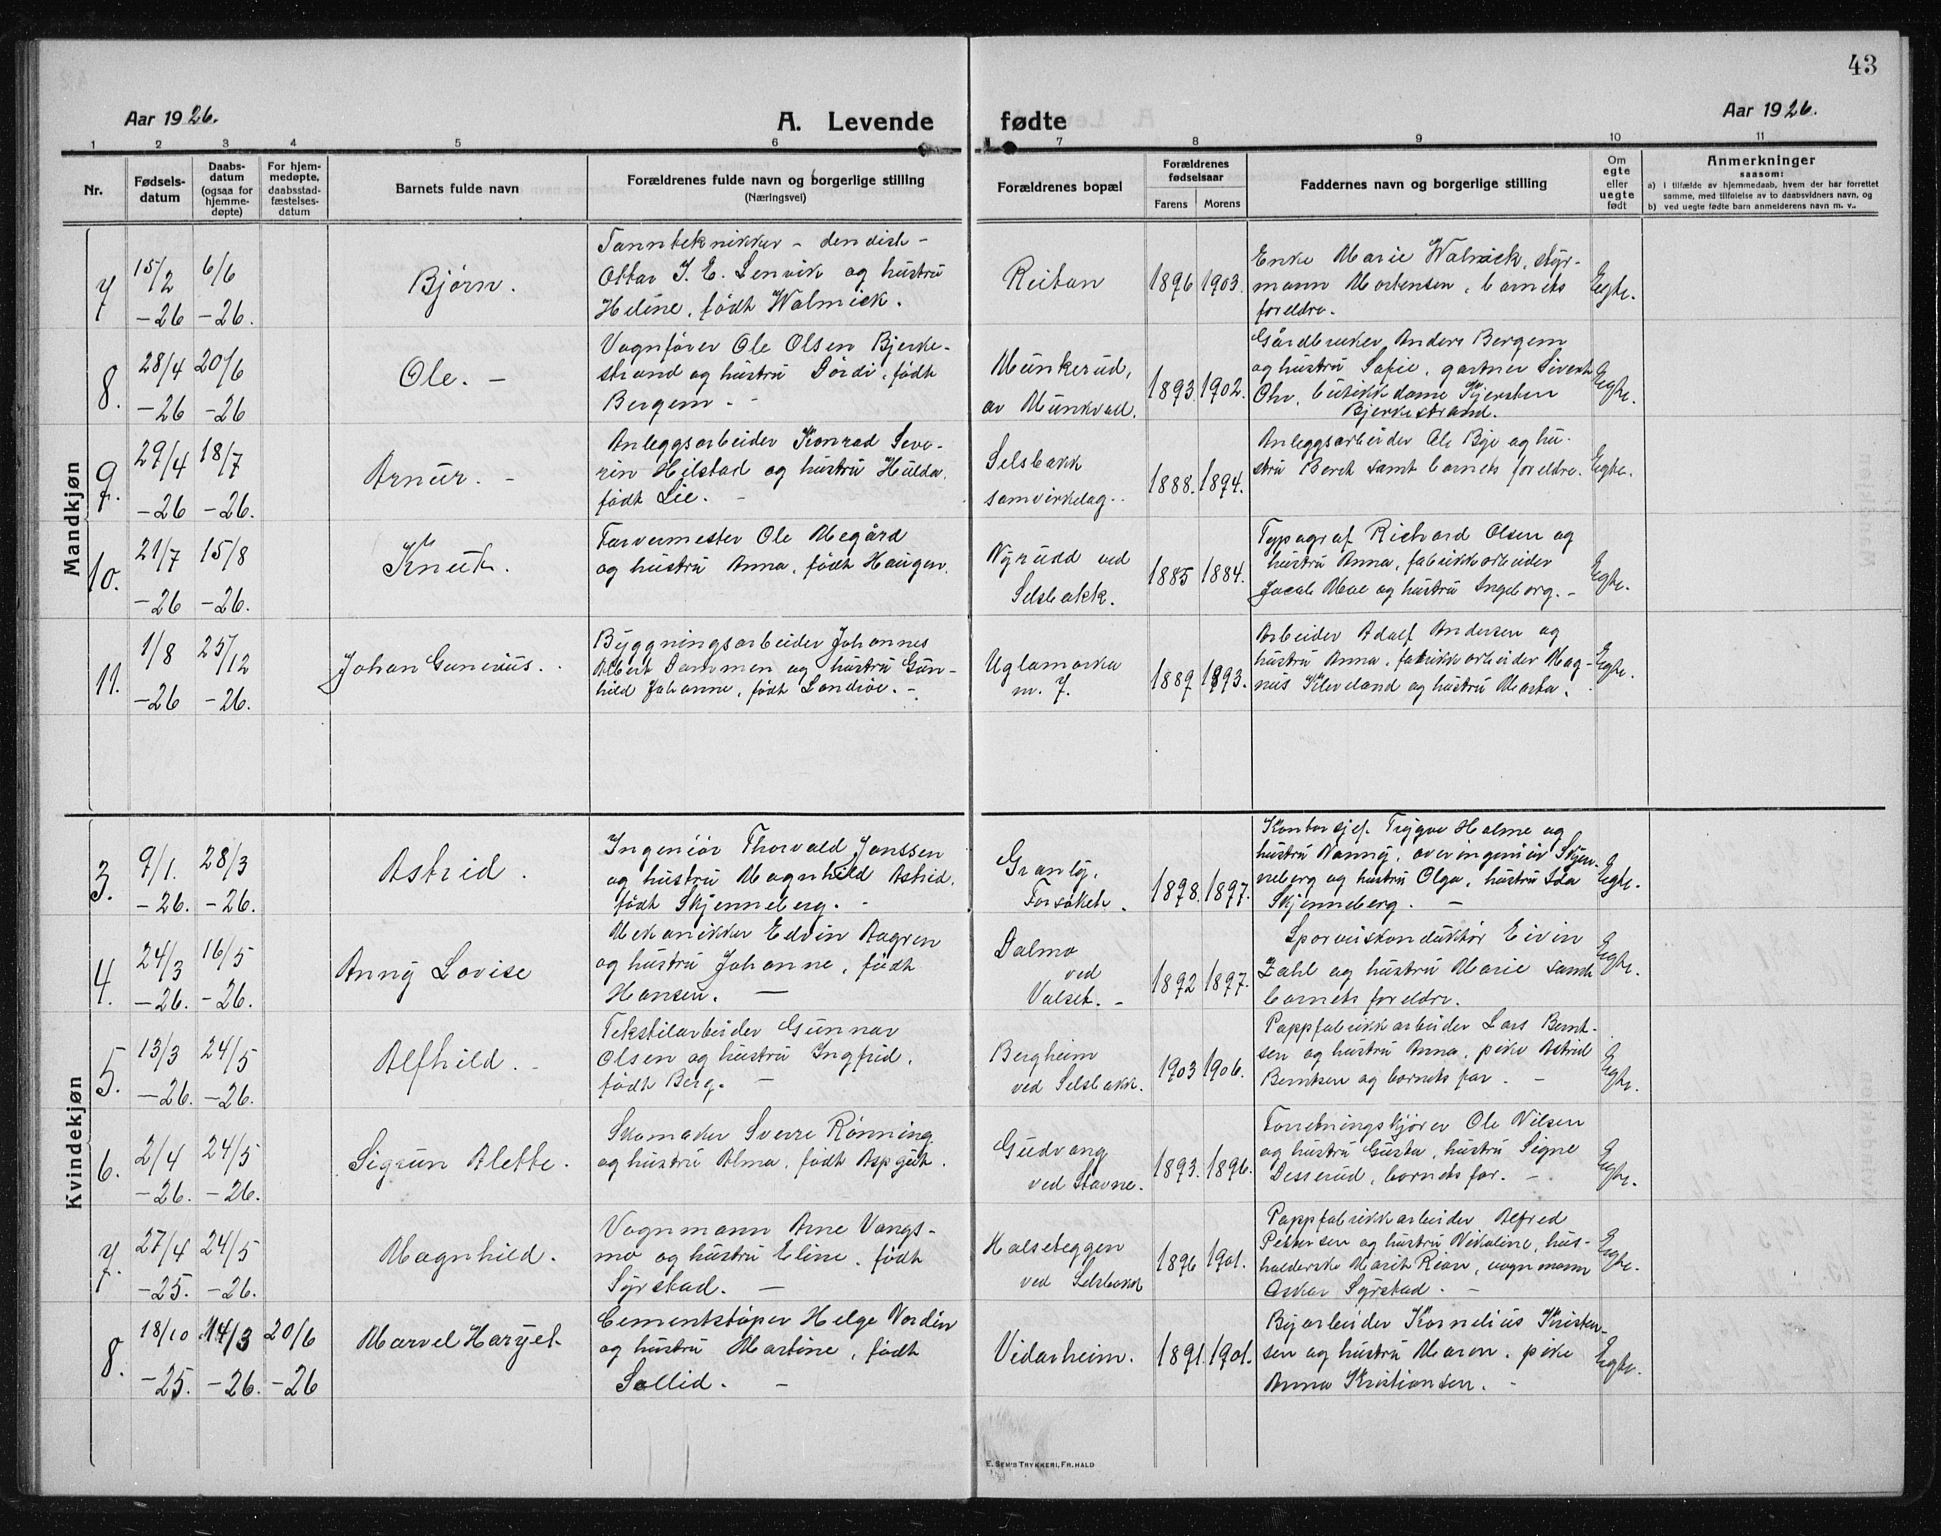 43
Aar 1926.
A. Levende
fødte
Aar 1926.
1 2 3 4 5 6 7 8 9 10 11
Nr.
Fødsels-
datum
Daabs-
datum
(ogsaa for
hjemme-
døpte)
For hjem-
medøpte,
daabsstad-
fæstelses-
datum
Barnets fulde navn
Forældrenes fulde navn og borgerlige stilling
(Næringsvei)
Forældrenes bopæl
Forældrenes
fødselsaar
Farens
Morens
Faddernes navn og borgerlige stilling
Om
egte
eller
uegte
født
Anmerkninger
saasom:
a) i tilfælde av hjemmedaab, hvem der har forrettet
samme, med tilføielse av to daabsvidners navn, og
b) ved uegte fødte barn anmelderens navn m. v..
Mandkjøn
7
15/2
-26
6/6
-26.
Bjørn.
Tannteknikker -
Ottar J. E. Lenvik og hustru
Heléne, født Walmick.
Reitan
1896
1903.
Enke Marie Walmick, styr-
mann Mortensen, barnets
foreldre.
Egte.
8.
28/4
-26
20/6
-26
Ole. -
Vognfører Ole Olsen Bjerke-
strand og hustru Dordi, født
Bergem. -
Munkerud,
av Munkvoll.
1893.
1902.
Gårdbruker Anders Bergem
og hustru Sofie, gartner Sivert
Ohr, butikkdame Kjersten
Bjerkestrand.
Egte.
9.
29/4
-26
18/7
-26.
Arnur. -
Anleggsarbeider Konrad Seve-
rin Hilstad og hustru Hulda,
født Lie. -
Selsbakk
samvirkelag.
1888.
1894.
Anleggsarbeider Ole Bye og hu-
stru Beret samt barnets foreldre.
Egte.
10.
21/7
-26
15/8
-26.
Knut.
Farvermester Ole Megård
og hustru Anna, født Haugen.
Nyrudd ved
Selsbakk.
1885
1884.
Typograf Richard Olsen og
hustru Anna, fabrikkarbeider
Jacob Moe og hustru Ingeborg. -
Egte.
11.
1/8
-26
25/12
-26.
Johan Gunerius.
Byggningsarbeider Johannes
Albert Dammen og hustru Gun-
hild Johanne, født Landrøe. -
Uglamarka
m. 7.
1889
1893.
Arbeider Adolf Andersen og
hustru Anna, fabrikkarbeider Mag-
nus Kleveland og hustru Marta.
Egte.
Kvindekjøn
3.
9/1.
-26.
28/3
-26.
Astrid.
Ingeniør Thorvald Janssen
og hustru Magnhild Astrid,
født Skjenneberg. -
Granly,
Forsøket.
1898.
1897.
Kontorsjef Trygve Holme og
hustru Nanny, overingeniør Skjen-
neberg og hustru Olga, hustru Ida
Skjenneberg. -
Egte.
4.
24/3
-26.
16/5
-26.
Anny Lovise
Mekanikker Edvin Aagren
og hustru Johanne, født
Hansen. -
Dalmo
ved
Valset. -
1892
1897.
Sporveiskonduktør Eivin
Zahl og hustru Marie samt
barnets foreldre.
Egte.
5.
13/3
-26.
24/5
-26.
Alfhild. -
Tekstilarbeider Gunnar
Olsen og hustru Ingfrid,
født Berg. -
Bergheim
ved Selsbakk.
1903
1906.
Pappfabrikkarbeider Lars Bernt-
sen og hustru Anna, pike Astrid
Berntsen og barnets far. -
Egte.
6.
2/4
-26.
24/5
-26.
Sigrun Alette.
Skomaker Sverre Rønning
og hustru Alma, født Aspgut.
Gudvang
ved Stavne.
1893.
1896.
Forretningskjører Ole Nilsen
og hustru Gusta, hustru Signe
Desserud, barnets far. -
Egte.
7.
27/4
-25.
24/5
-26.
Magnhild.
Vognmann Arne Vangs-
mo og hustru Eline, født
Syrstad. -
Halseteggen
ved Selsbakk
1896
1901.
Pappfabrikkarbeider Alfred
Pettersen og hustru Nikoline, hus-
holderske Marit Rian, vognmann
Oskar Syrstad. -
Egte.
8.
18/10
-25.
14/3
-26.
20/6
-26
Marvel Haryet
Cementstøper Helge Nordén
og hustru Martine, født
Sollid. -
Vidarheim.
1891.
1901.
Byarbeider Kornelius Kristen-
sen og hustru Maren, pike
Anna Kristiansen. -
Egte.
E. SEM'S TRYKKERI, FR.HALD